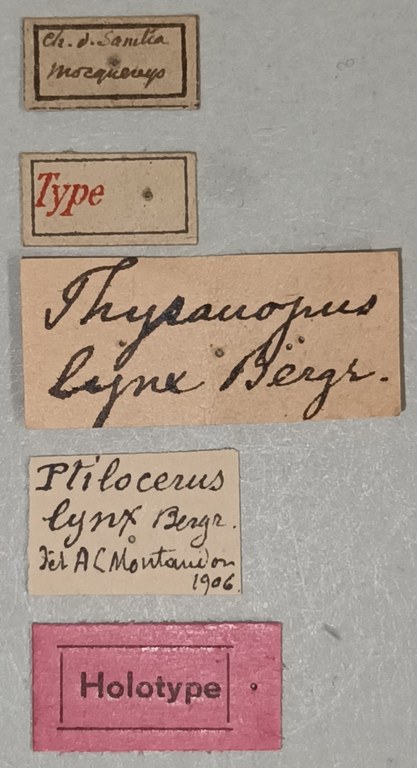 Ch. d. Sanita
Mocquerys
Type
Thysanopus
lynx Bergr.
Ptilocerus
lynx Bergr.
Det A L Montandon
1906.
Holotype